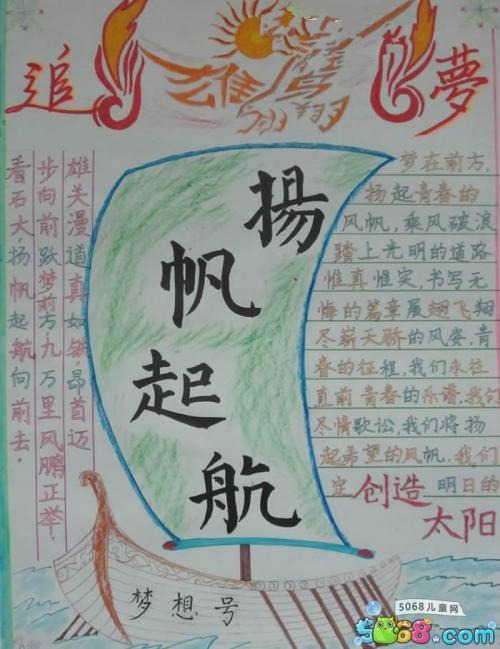 追夢
揚
帆
起
航
雄关漫道真如铁,昂首迈
步向前跃,梦前方九万里风鹏正举!
看石大,扬帆起航向前去。
梦在前方,
扬起青春的
风帆,乘风破浪
踏上光明的道路
惟真惟实,书写无
悔的篇章展翅飞翔
尽崭天骄的风姿,青
春的征程,我们永往
直前青春的乐谱,我们
尽情歌讼,我们将扬
起希望的风帆,我们
定创造明日的
太阳
梦想号
5068儿童网
5068.com